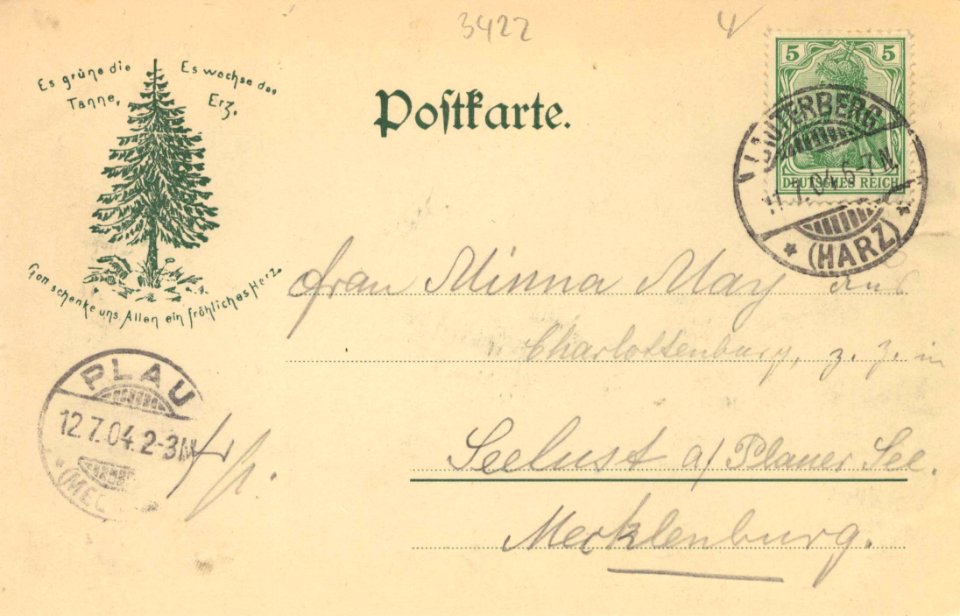 3422
Es grüne die
Tanne,
Es wachse das
Erz.
Gott schenke uns Allen ein fröhliches Herz
Postkarte.
5 5
DEUTSCHES REICH
LAUTERBERG
7.04. 6-7 N.
* (HARZ) *
Frau Minna May aus
Charlottenburg, z. z. in
Seelust a/ Plauer See.
Mecklenburg.
PLAU
12.7.04. 2-3N
(MEC